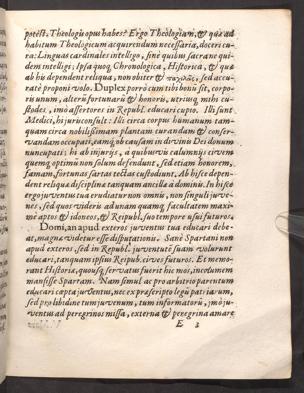 potest. Theologiæ opus habes? Ergo Theologiam, & quæ ad
habitum Theologicum acquirendum necessaria, doceri cu-
ra: Linguas cardinales intelligo, sine quibus sacra ne qui-
dem intellige: Ipsa quoque Chronologica, Historica, & quæ
ab his dependent reliqua, non obiter & sed accu-
ratè proponi volo. Duplex porrò cum tibi bonū sit, corpo-
ris unum, alterū fortunarū & honoris, utriusque mihi cu-
stodes, imò assertores in Republ. educari cupio. Illi sunt
Medici, hi jurisconsulti: Illi circa corpus humanum tam-
quam circa nobilissimam plantam curandum & conser-
vandam occupati, eamque ob causam in divinis Dei donum
nuncupati: hi ab injurijs, à quibus vis calumnijs civem
quemque optimū non solum defendunt, sed etiam honorem,
famam, fortunas sartas tectas custodiunt. Ab his se depen-
dent reliquæ disciplinæ tanquam ancillæ à dominis. In his se
ergo juventus tua erudiatur non omnis, non singuli juve-
nes, sed quos videris ad unam quamque facultatem maxi-
mè aptos & idoneos, & Reipubl. suo tempore usui futuros.
Domi, an apud exteros juventus tua educari debe-
at, magnæ videtur esse disputationis. Sanè Spartani non
apud exteros, sed in Republ. juventutē suam voluerunt
educari, tanquam ipsius Reipub. cives futuros. Et memo-
rant Historia, quousque servatus fuerit hic mos, incolumem
mansisse Spartam. Nam simul ac pro arbitrio parentum
educari cœpta juventus, nec ex præscripto legū patriarum,
sed pro libidine tum juvenum, tum informatorū, imò ju-
ventus ad peregrinos missa, externa & peregrina amare
E 3